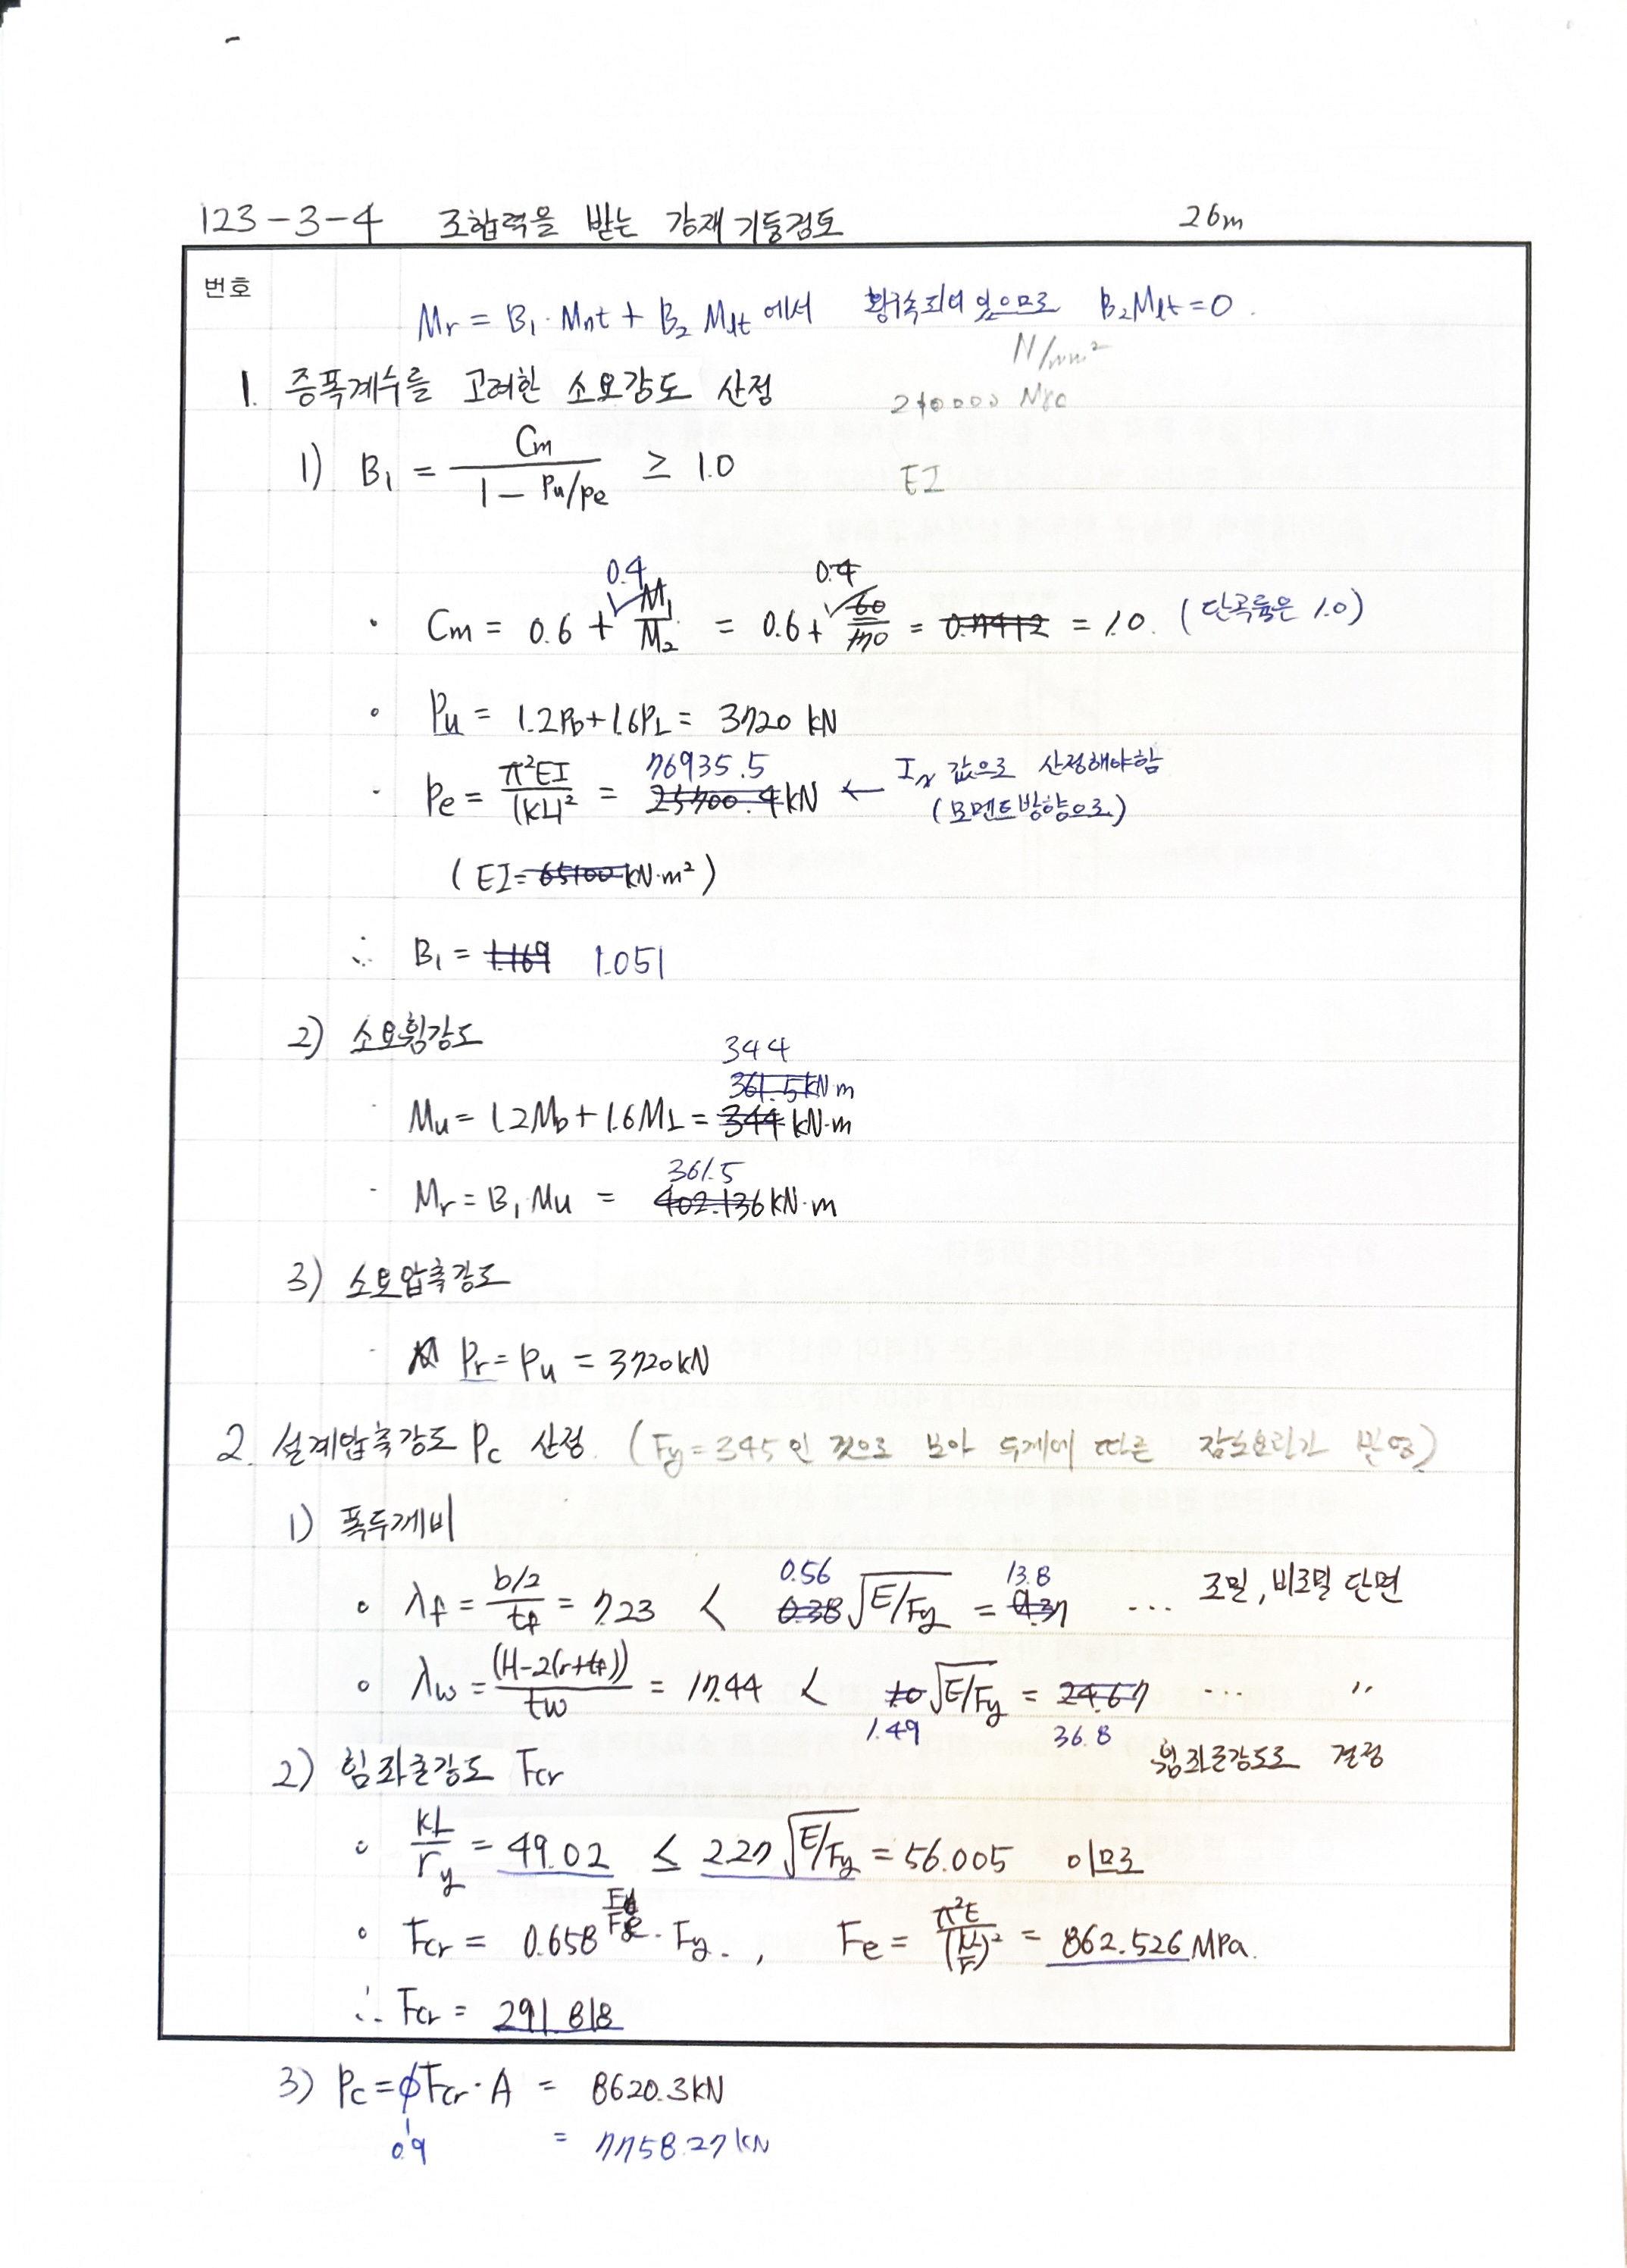 123-3-4 조합력을 받는 강재기둥검토 26m
번호
Mr = B1·Mnt + B2 Mlt 에서 횡구속되어 있으므로 B2Mlt = 0.
N/mm²
1. 증폭계수를 고려한 소요강도 산정
210000 MPa
1) B1 = Cm / (1 - Pu/Pe) ≥ 1.0
EI
0.4 0.4
· Cm = 0.6 + M1/M2 = 0.6 + 60/170 = = 1.0. (단곡률은 1.0)
· Pu = 1.2PD + 1.6PL = 3720 kN
· Pe = π²EI/(KL)² = 76935.5 25700.4 kN ← Ix 값으로 산정해야함
(모멘트방향으로)
(EI = 65100 kN·m²)
∴ B1 = 1.169 1.051
2) 소요휨강도
344
361.5 kN·m
· Mu = 1.2MD + 1.6ML = 344 kN·m
361.5
· Mr = B1 Mu = 402.136 kN·m
3) 소요압축강도
· Pr = Pu = 3720 kN
2. 설계압축강도 Pc 산정. (Fy = 345인 것으로 보아 두께에 따른 감소요인가 반영)
1) 폭두께비
0.56 13.8
· λf = (b/2)/tf = 7.23 < 0.38 √E/Fy = 9.37 ... 조밀, 비조밀 단면
· λw = (H-2(r+tf))/tw = 17.44 < √E/Fy = 24.67 ... "
1.49 36.8
휨좌굴강도로 결정
2) 휨좌굴강도 Fcr
· KL/ry = 49.02 ≤ 2.27 √E/Fy = 56.005 이므로
· Fcr = 0.658^(Fy/Fe) · Fy. , Fe = π²E/(KL/r)² = 862.526 MPa.
∴ Fcr = 291.818
3) Pc = ϕFcr · A = 8620.3 kN
0.9 = 7758.27 kN